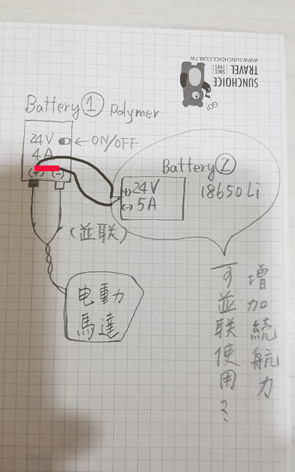 SUNCHOICE
TRAVEL SINCE 1985
WWW.SUNCHOICE.COM.TW
GO!
Battery ① Polymer
24V
4A
←ON/OFF
(+) (-)
Battery ②
18650Li
(+) 24V
(-) 5A
(並联)
电動
馬達
增加続航力
可並联使用?